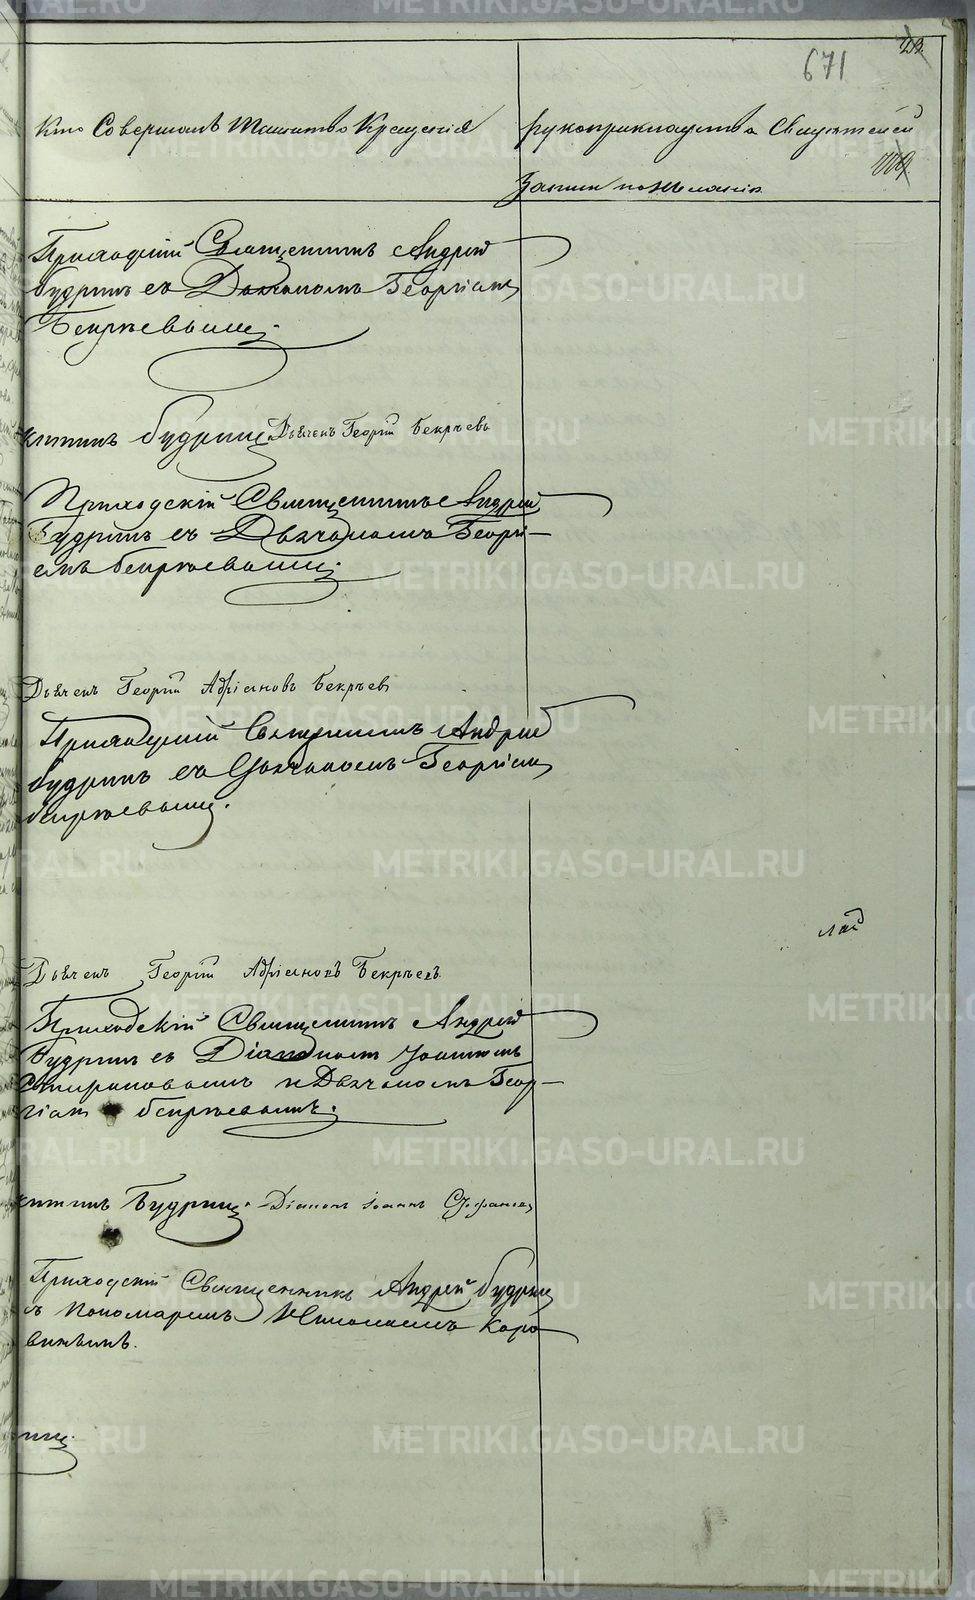 671
Кто Совершалъ Таинство Крещенія
Рукоприкладство Свидѣтелей
записи по желанію
Приходскій Священникъ Андрей
Будринъ съ Дьячкомъ Георгіемъ
Бекрѣевымъ.
Будринъ. Дьячекъ Георгій Бекрѣевъ
Приходскій Священникъ Андрей
Будринъ съ Дьячкомъ Георгі-
емъ Бекрѣевымъ.
Дьячекъ Георгій Адріановъ Бекрѣевъ
Приходскій Священникъ Андрей
Будринъ съ Дьячкомъ Георгіемъ
Бекрѣевымъ.
Дьячекъ Георгій Адріановъ Бекрѣевъ
Приходскій Священникъ Андрей
Будринъ съ Діакономъ Іоанномъ
и Дьячкомъ Геор-
гіемъ Бекрѣевымъ.
Будринъ. Діаконъ Іоаннъ
Приходскій Священникъ Андрей Будринъ
съ Пономаремъ Николаемъ Коро-
винымъ.
METRIKI.GASO-URAL.RU